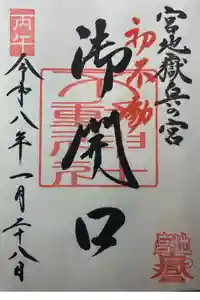 宮地嶽兵の宮
初不動
御開口
令和八年一月二十八日
丙午